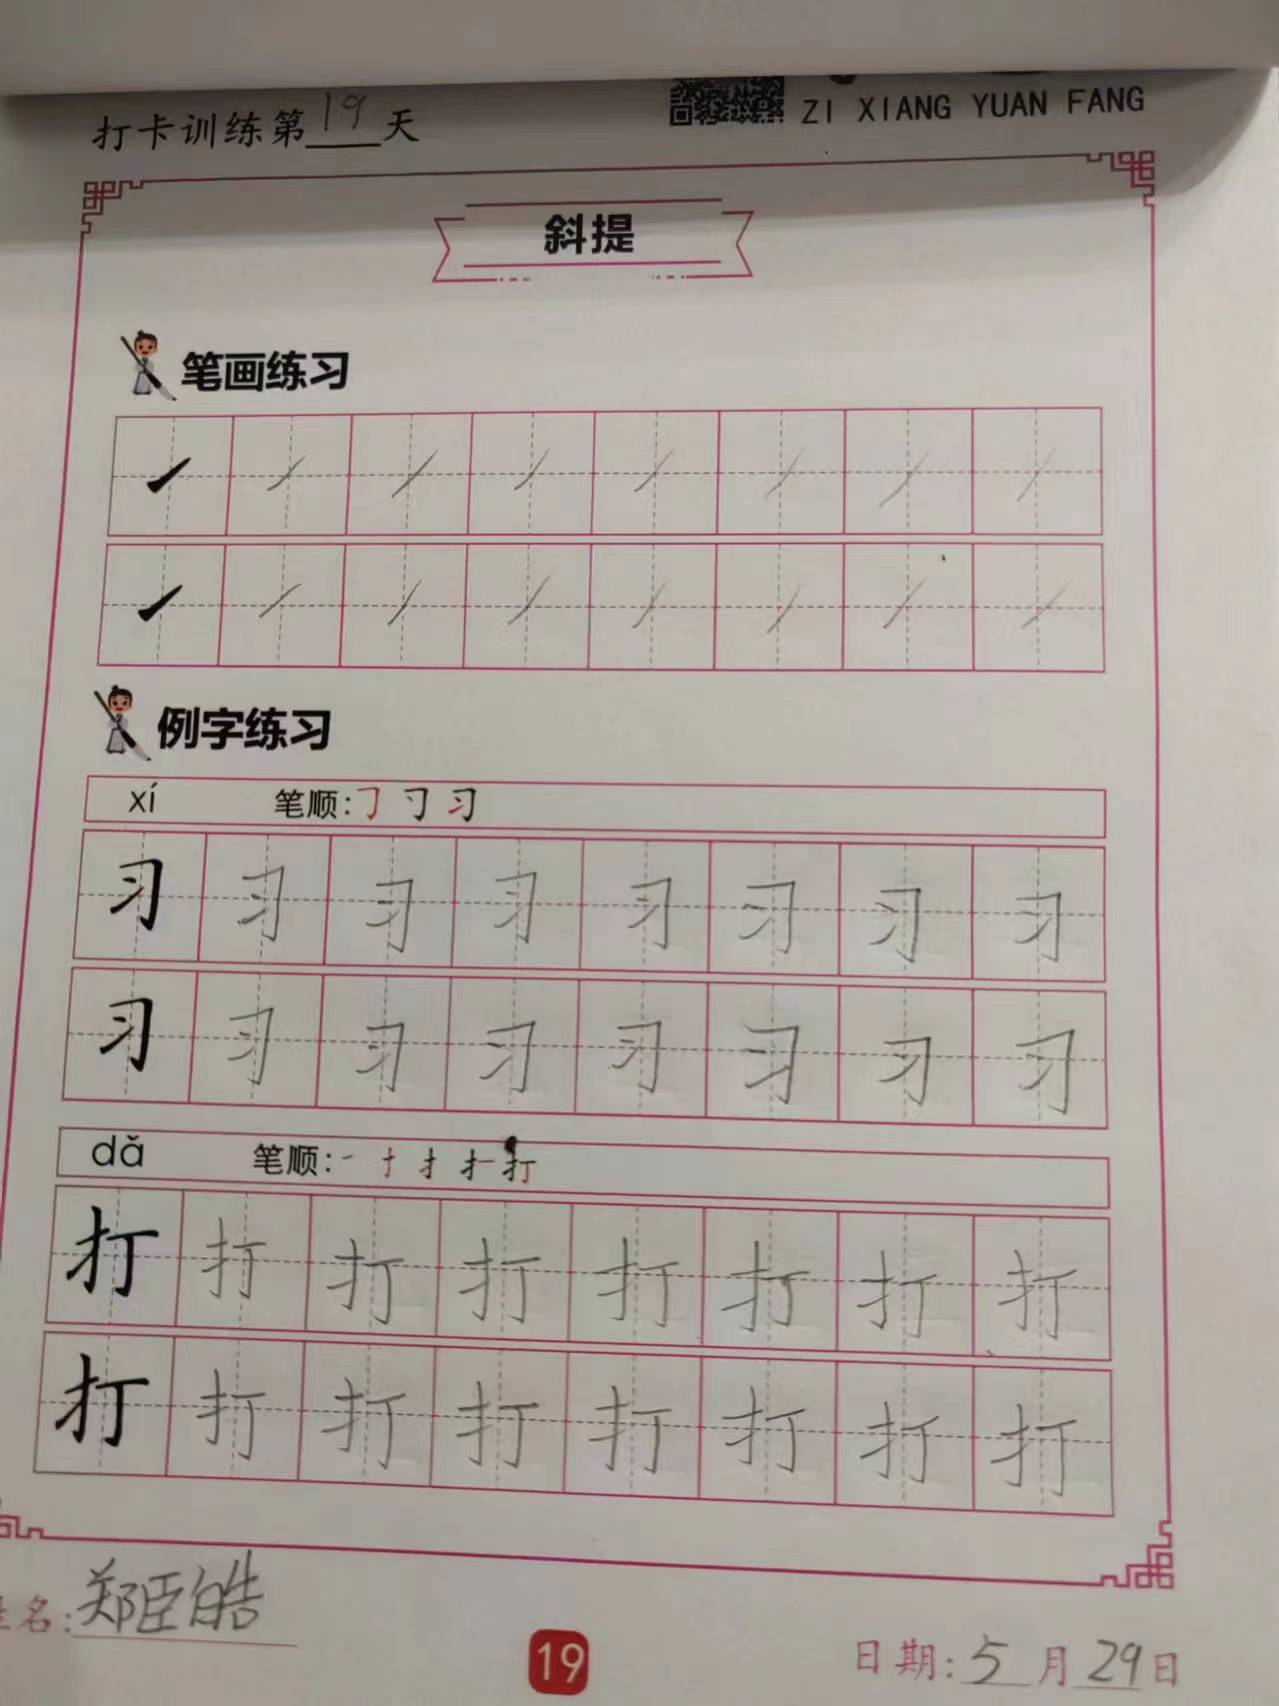 打卡训练第19天
ZI XIANG YUAN FANG
斜提
笔画练习
㇀
㇀
例字练习
xí 笔顺:㇆ 习 习
习 习 习 习 习 习 习 习
习 习 习 习 习 习 习 习
dǎ 笔顺:一 扌 打
打 打 打 打 打 打 打 打
打 打 打 打 打 打 打 打
姓名:郑臣皓
19
日期:5月29日